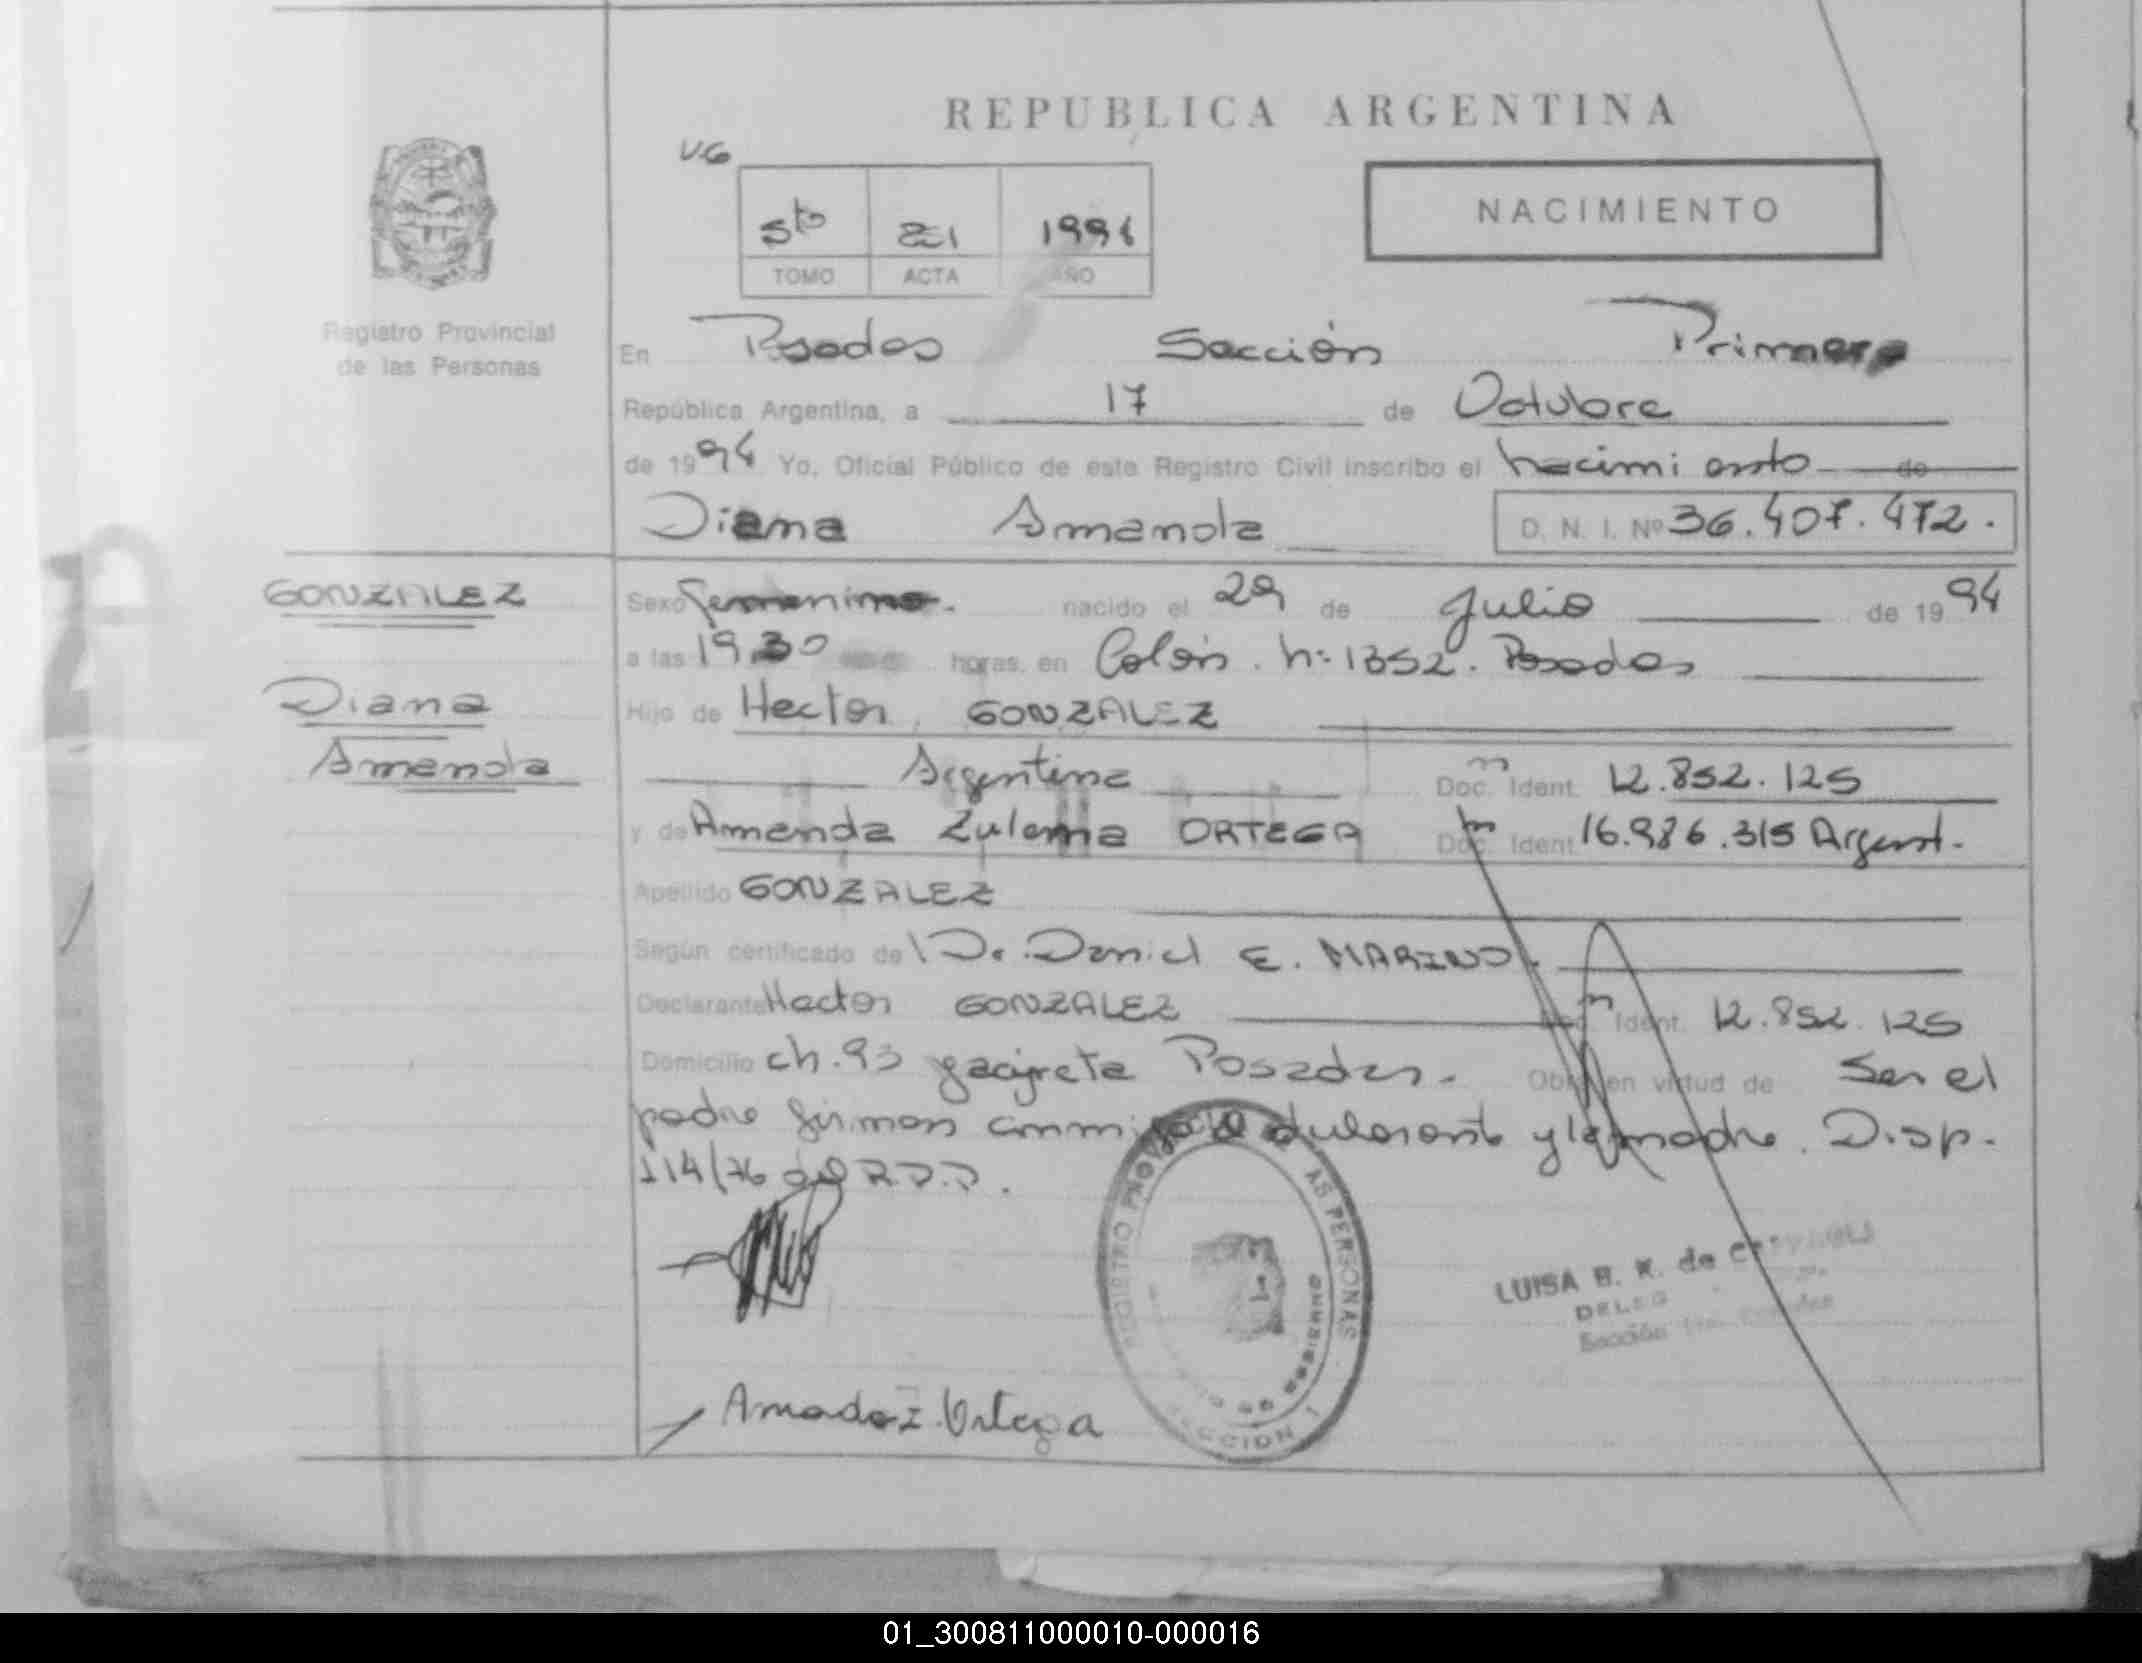 REPUBLICA ARGENTINA
VG
5to 1994
TOMO ACTA AÑO
NACIMIENTO
Registro Provincial
de las Personas
En Posadas Sección Primera
República Argentina, a 17 de Octubre
de 1994 Yo, Oficial Público de este Registro Civil inscribo el nacimiento de
Diana Amanda D. N. I. Nº 36.407.472.
GONZALEZ
Diana
Amanda
Sexo femenino. nacido el 29 de Julio de 1994
a las 19.30 horas, en Colón. nº 1352. Posadas
Hijo de Hector GONZALEZ
Argentina Doc. Ident. 12.852.125
y de Amanda Zulema ORTEGA Doc. Ident. 16.986.315 Argent.
Apellido GONZALEZ
Según certificado de Dr. Daniel E. MARINO.
Declarante Hector GONZALEZ Doc. Ident. 12.852.125
Domicilio ch.93 yacireta Posadas. Obra en virtud de Ser el
padre firman conmigo el declarante y la madre. Disp.
114/76 del R.P.P.
REGISTRO PROVINCIAL DE LAS PERSONAS
SECCION 1
LUISA B. K. de
DELEG
Sección 1ra. Posadas
Amada Z. Ortega
01_300811000010-000016